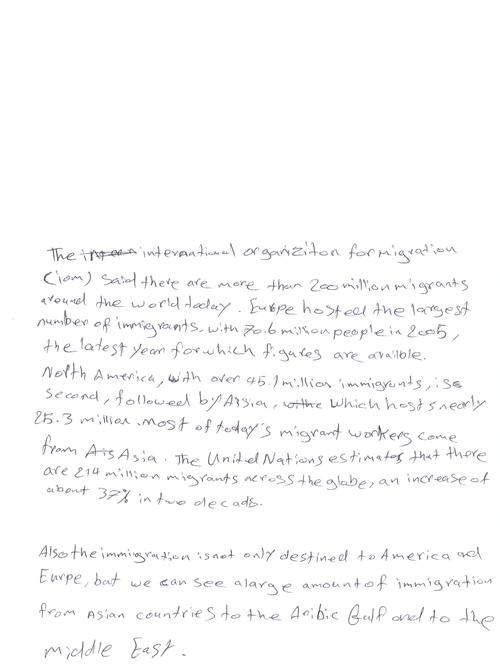 The international organiziton for migration
(iom) said there are more than 200 million migrants
around the world today. Europe hosted the largest
number of immigrants, with 70.6 million people in 2005,
the latest year for which figures are availble.
North America, with over 45.1 million immigrants, is
second, followed by Asia, which hosts nearly
25.3 million. Most of today's migrant workers come
from Asia. The United Nations estimates that there
are 214 million migrants across the globe, an increase of
about 37% in two decads.
Also the immigration is not only destined to America and
Eurpe, but we can see a large amount of immigration
from Asian countries to the Aribic Gulf and to the
middle East.